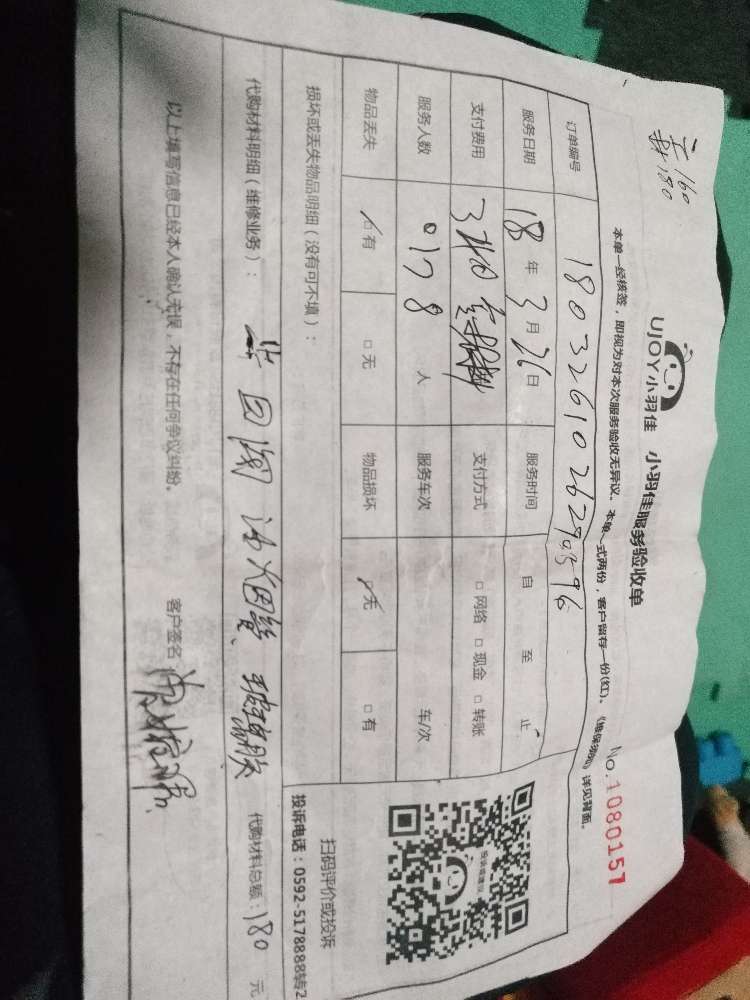 260
材180
UJOY小羽佳 小羽佳服务验收单
No.1080157
本单一经核签，即视为对本次服务验收无异议。本单一式两份，客户留存一份(红)。《维保须知》详见背面。
订单编号
服务日期 18年3月26日 服务时间 自 至 止
支付费用 支付方式 □网络 □现金 □转账
服务人数 人 服务车次 车/次
物品丢失 □有 □无 物品损坏 □无 □有
损坏或丢失物品明细（没有可不填）：
扫码评价或投诉
投诉电话：0592-5178888转2
代购材料明细（维修业务）： 止回阀 玻璃胶 代购材料总额：180元
以上填写信息已经本人确认无误，不存在任何争议纠纷。 客户签名